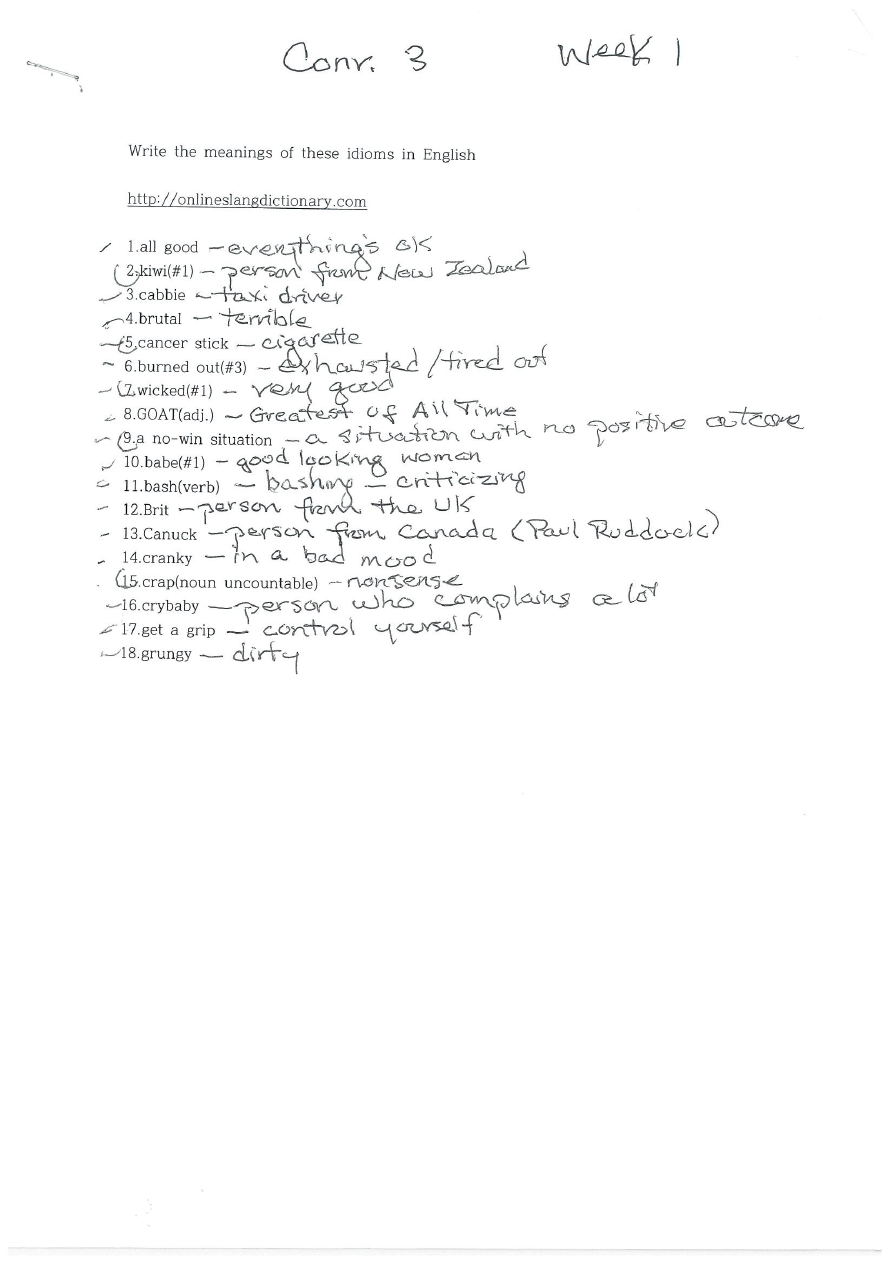 Conv. 3 Week 1
Write the meanings of these idioms in English
http://onlineslangdictionary.com
1.all good – everything's OK
2.kiwi(#1) – person from New Zealand
3.cabbie – taxi driver
4.brutal – terrible
5.cancer stick – cigarette
6.burned out(#3) – exhausted/tired out
7.wicked(#1) – very good
8.GOAT(adj.) – Greatest Of All Time
9.a no-win situation – a situation with no positive outcome
10.babe(#1) – good looking woman
11.bash(verb) – bashing – criticizing
12.Brit – person from the UK
13.Canuck – person from Canada (Paul Ruddock)
14.cranky – in a bad mood
15.crap(noun uncountable) – nonsense
16.crybaby – person who complains a lot
17.get a grip – control yourself
18.grungy – dirty